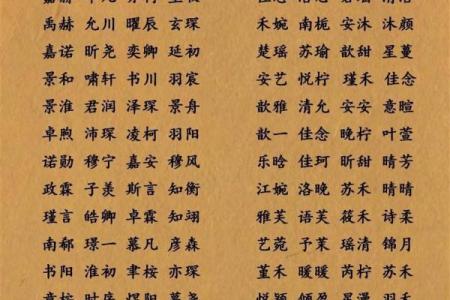 禹赫 允川 曜辰 玄琛 禾婉 南栀 安沐 沐颜
嘉诺 昕尧 奕卿 延初 楚瑶 苏瑜 歆甜 星蔓
景和 啸轩 书川 羽宸 安艺 悦柠 瑾禾 佳念
景淮 君润 泽琛 景舟 歆雅 清允 安安 意暄
卓煦 沛琛 凌柯 羽阳 歆一 佳念 晚柠 叶萱
诺勋 穆宁 嘉安 穆风 乐晗 佳珂 昕甜 晴芳
政霖 子羡 斯言 知衡 江婉 洛晚 苏禾 晴晴
瑾言 皓卿 卓霖 知翊 雅芙 语芙 筱禾 诗柔
南郁 璟一 慕凡 彦森 艺菀 予茉 瑶清 锦月
书阳 淮初 聿桉 亦琛 堇禾 暖暖 芮柠 苏禾